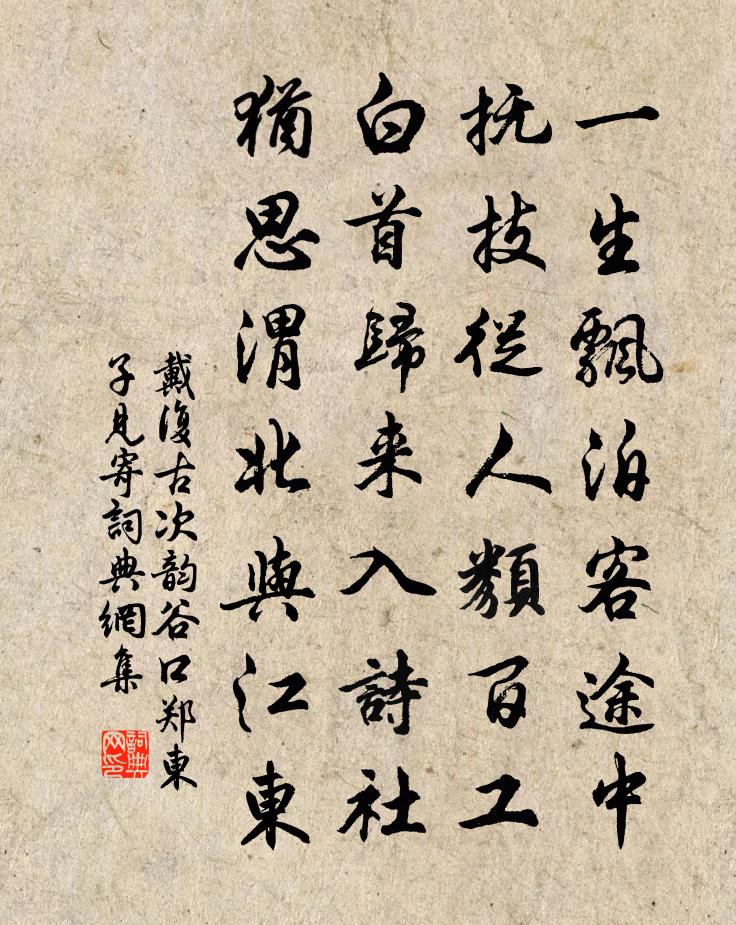 一生飄泊客途中
抚技從人類百工
白首歸来入詩社
猶思渭北與江東
戴復古次韵谷口郑東
子見寄詞典網集
詞典
网印